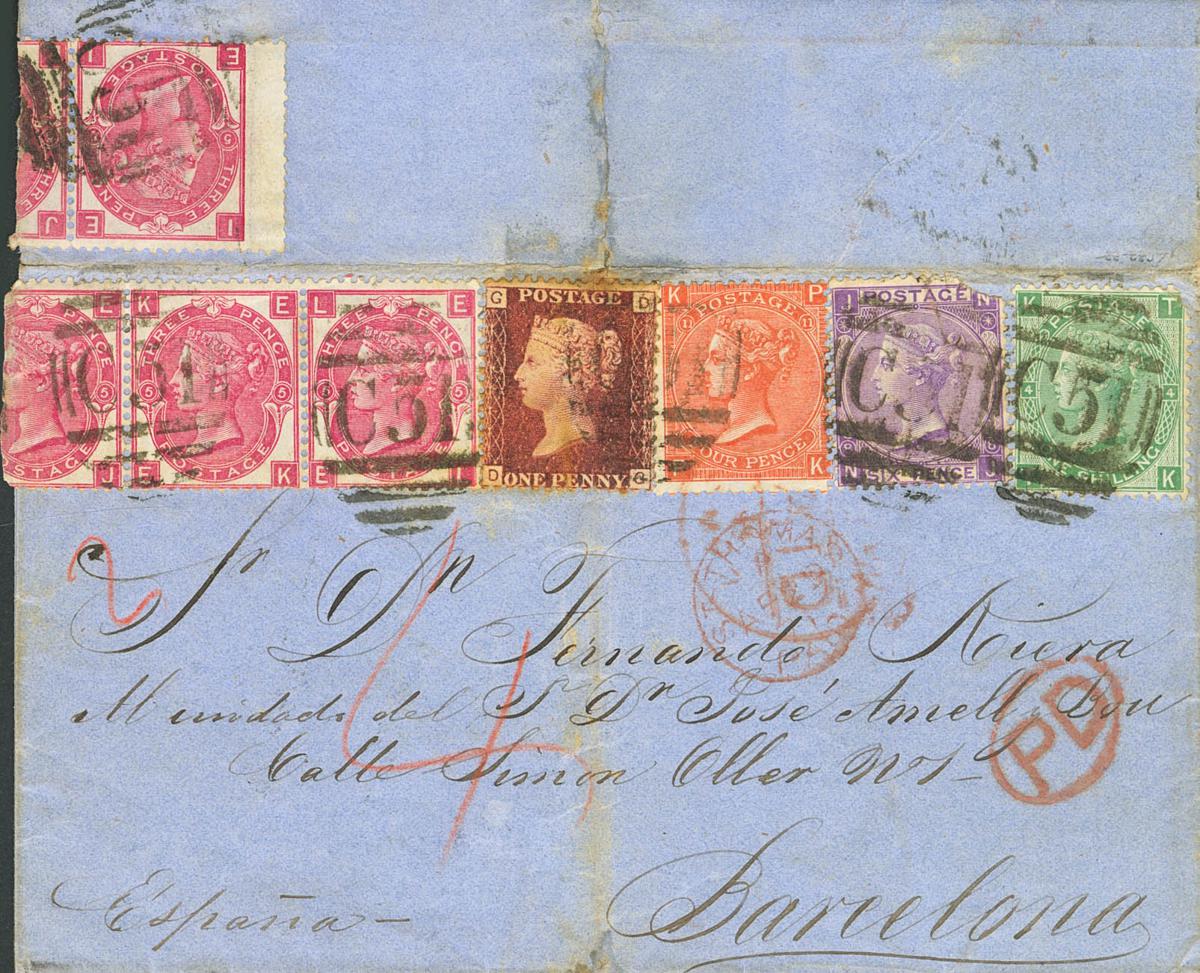 I E
POSTAGE
THREE PENCE
I E
THREE
J
E K E L E
PENCE THREE PENCE THREE PENCE
5 5 5
POSTAGE POSTAGE POSTAGE
J E K E L
C51 C51
G D
POSTAGE
ONE PENNY
D G
K P
POSTAGE
FOUR PENCE
K
J N
POSTAGE
SIX PENCE
N J
C51
K T
POSTAGE
4 4
C51
ONE SHILLING
K
2
ST THOMAS
PAID
Sr Dn Fernando Riera
del Sr Dn José Amell Bou
Calle Simon Oller No 1
4
PD
España
Barcelona